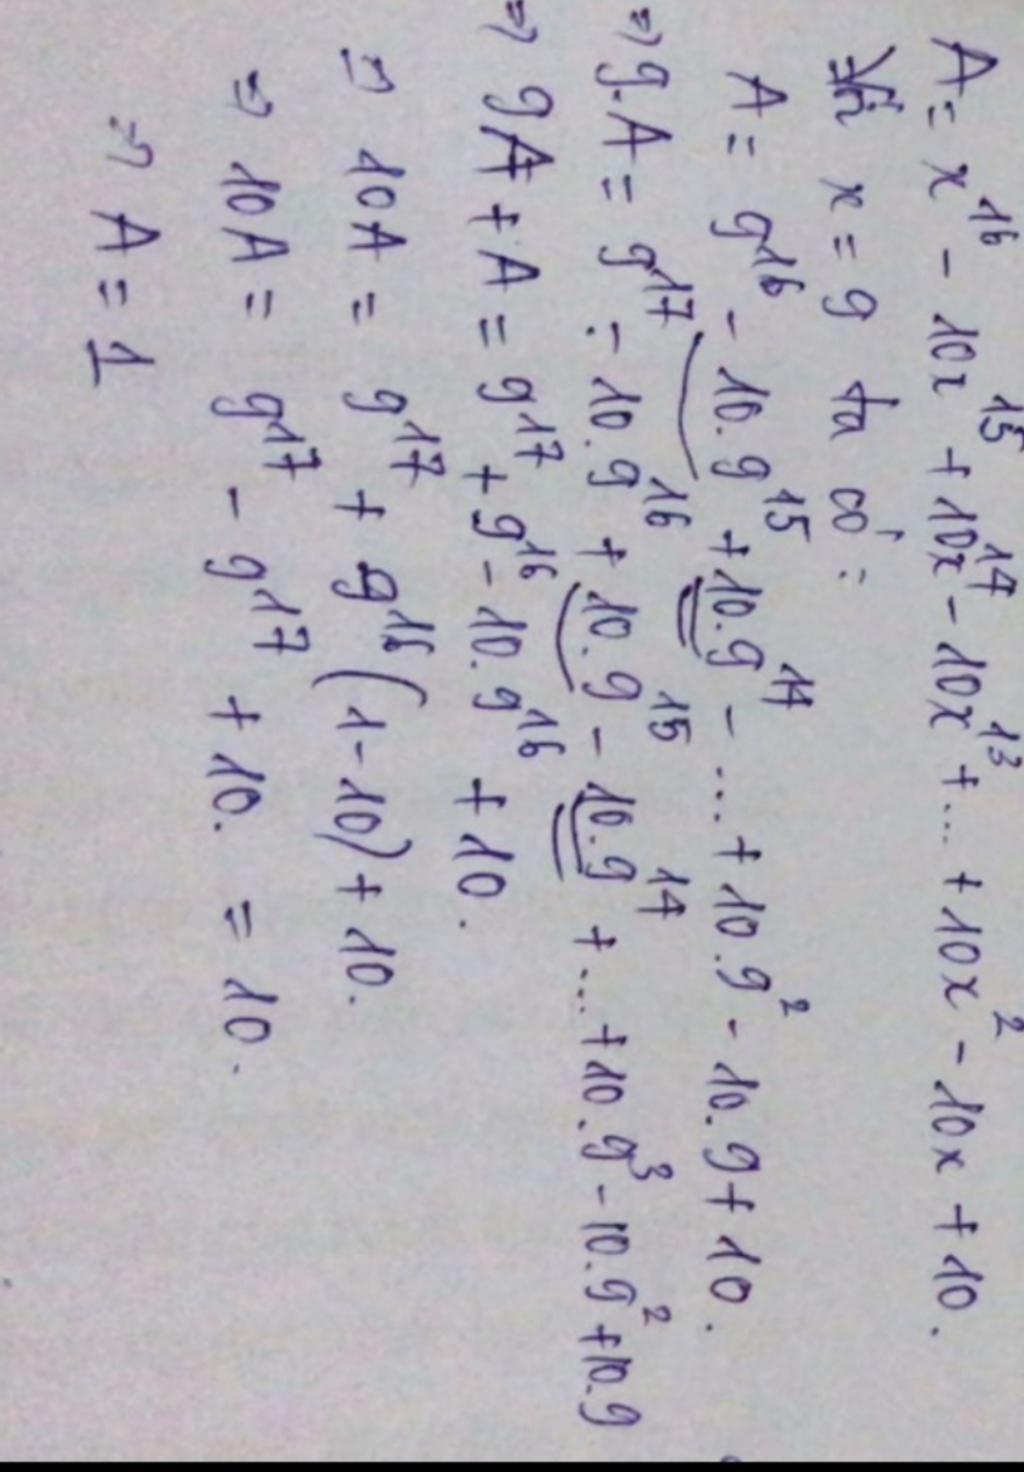 A = x^16 - 10x^15 + 10x^14 - 10x^13 + ... + 10x^2 - 10x + 10.
Với x = 9 ta có:
A = 9^16 - 10.9^15 + 10.9^14 - ... + 10.9^2 - 10.9 + 10.
=> 9.A = 9^17 - 10.9^16 + 10.9^15 - 10.9^14 + ... + 10.9^3 - 10.9^2 + 10.9
=> 9A + A = 9^17 + 9^16 - 10.9^16 + 10.
=> 10A = 9^17 + 9^16 (1-10) + 10.
=> 10A = 9^17 - 9^17 + 10. = 10.
=> A = 1